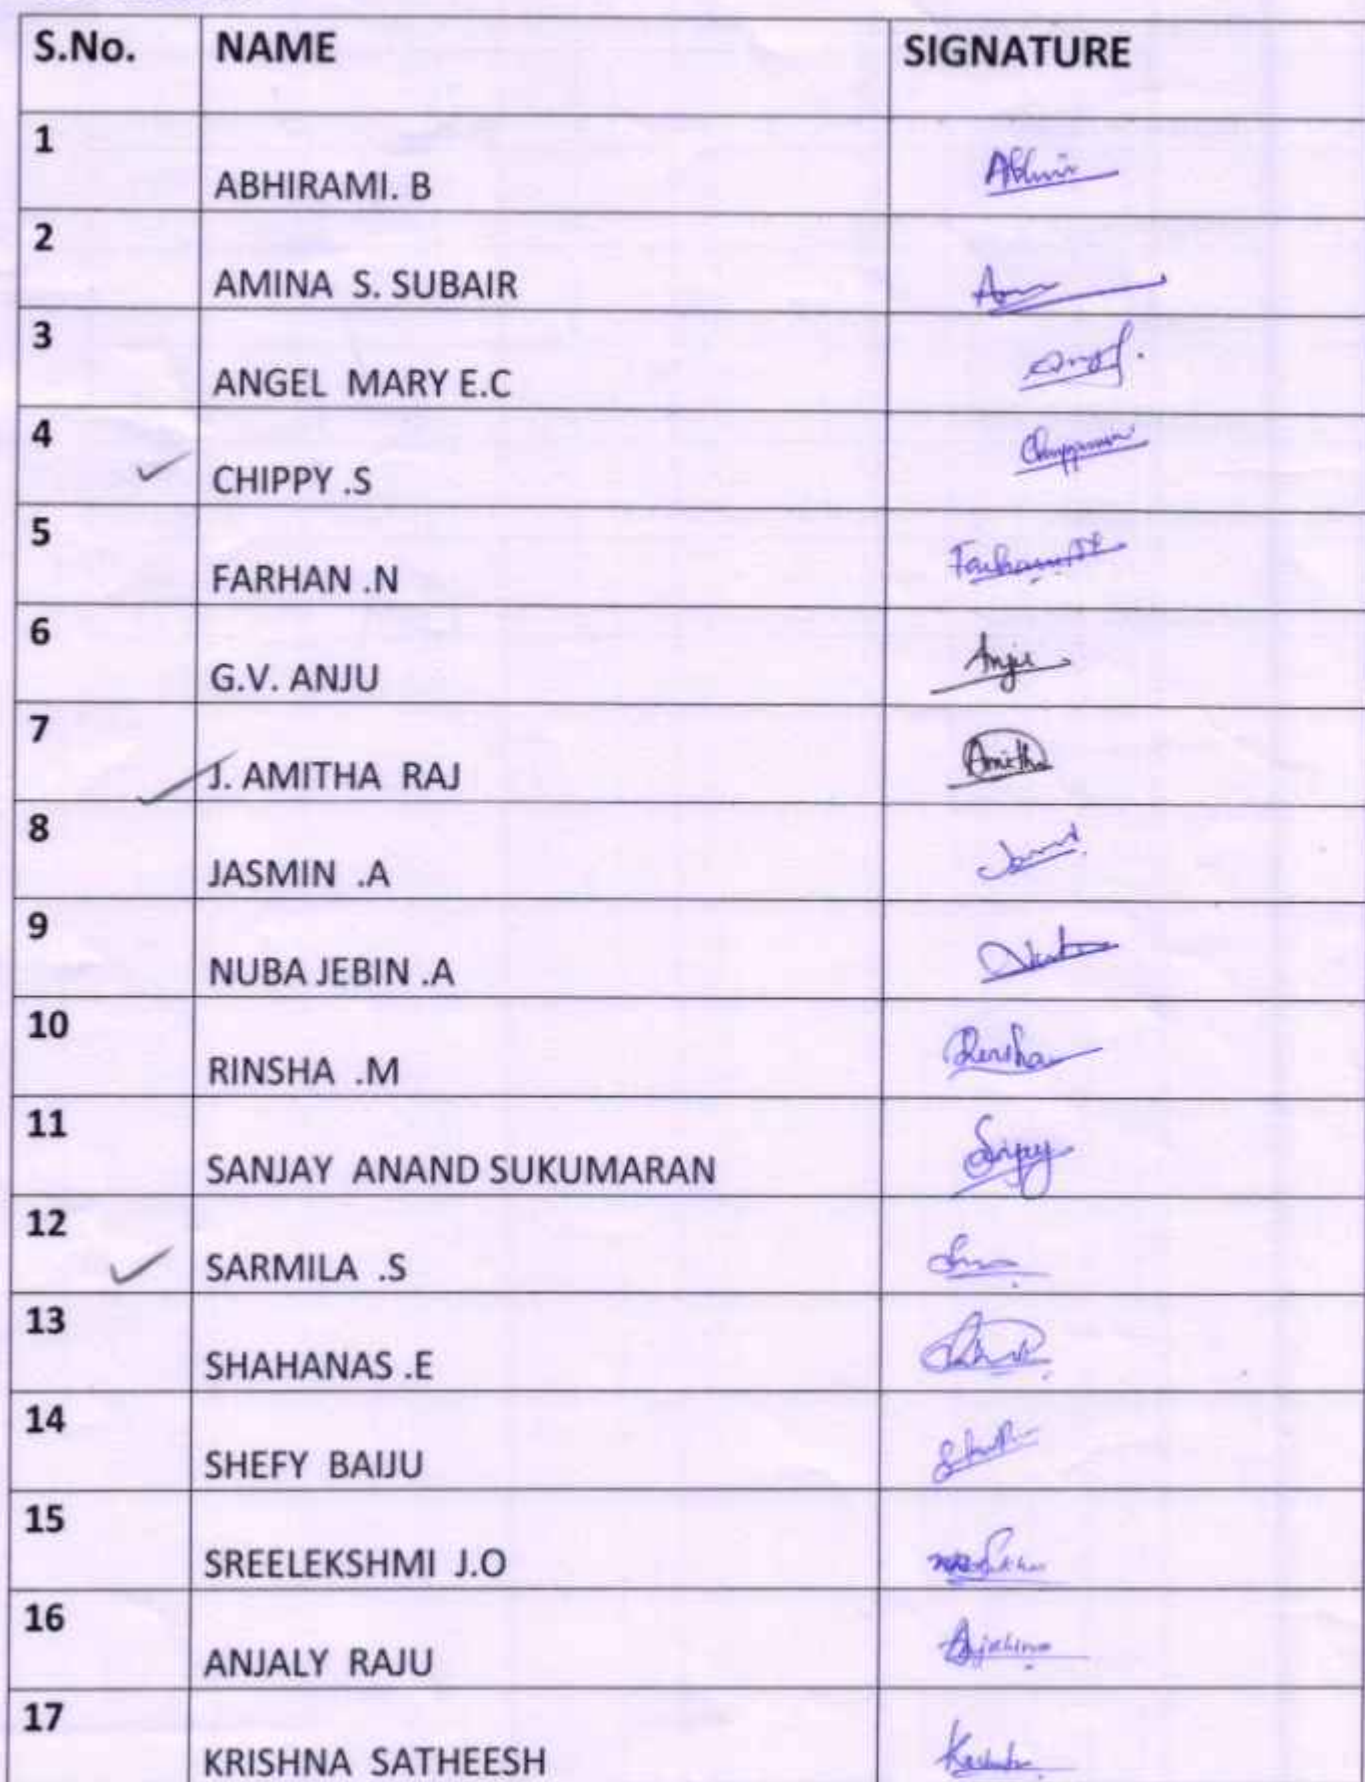 S.No. NAME SIGNATURE
1
ABHIRAMI. B
2
AMINA S. SUBAIR
3
ANGEL MARY E.C
4
CHIPPY .S
5
FARHAN .N Farhan
6
G.V. ANJU Anju
7
J. AMITHA RAJ Amitha
8
JASMIN .A
9
NUBA JEBIN .A
10
RINSHA .M Rinsha
11
SANJAY ANAND SUKUMARAN Sanjay
12
SARMILA .S
13
SHAHANAS .E
14
SHEFY BAIJU
15
SREELEKSHMI J.O
16
ANJALY RAJU
17
KRISHNA SATHEESH